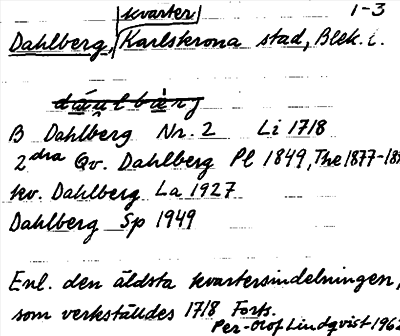 kvarter 1-3
Dahlberg, Karlskrona stad, Blek. l.
B Dahlberg Nr. 2 Li 1718
2dra Qv. Dahlberg Pl 1849, The 1877-18
kv. Dahlberg La 1927
Dahlberg Sp 1949
Enl. den äldsta kvartersindelningen,
som verkställdes 1718 Forts.
Per-Olof Lindqvist 1962